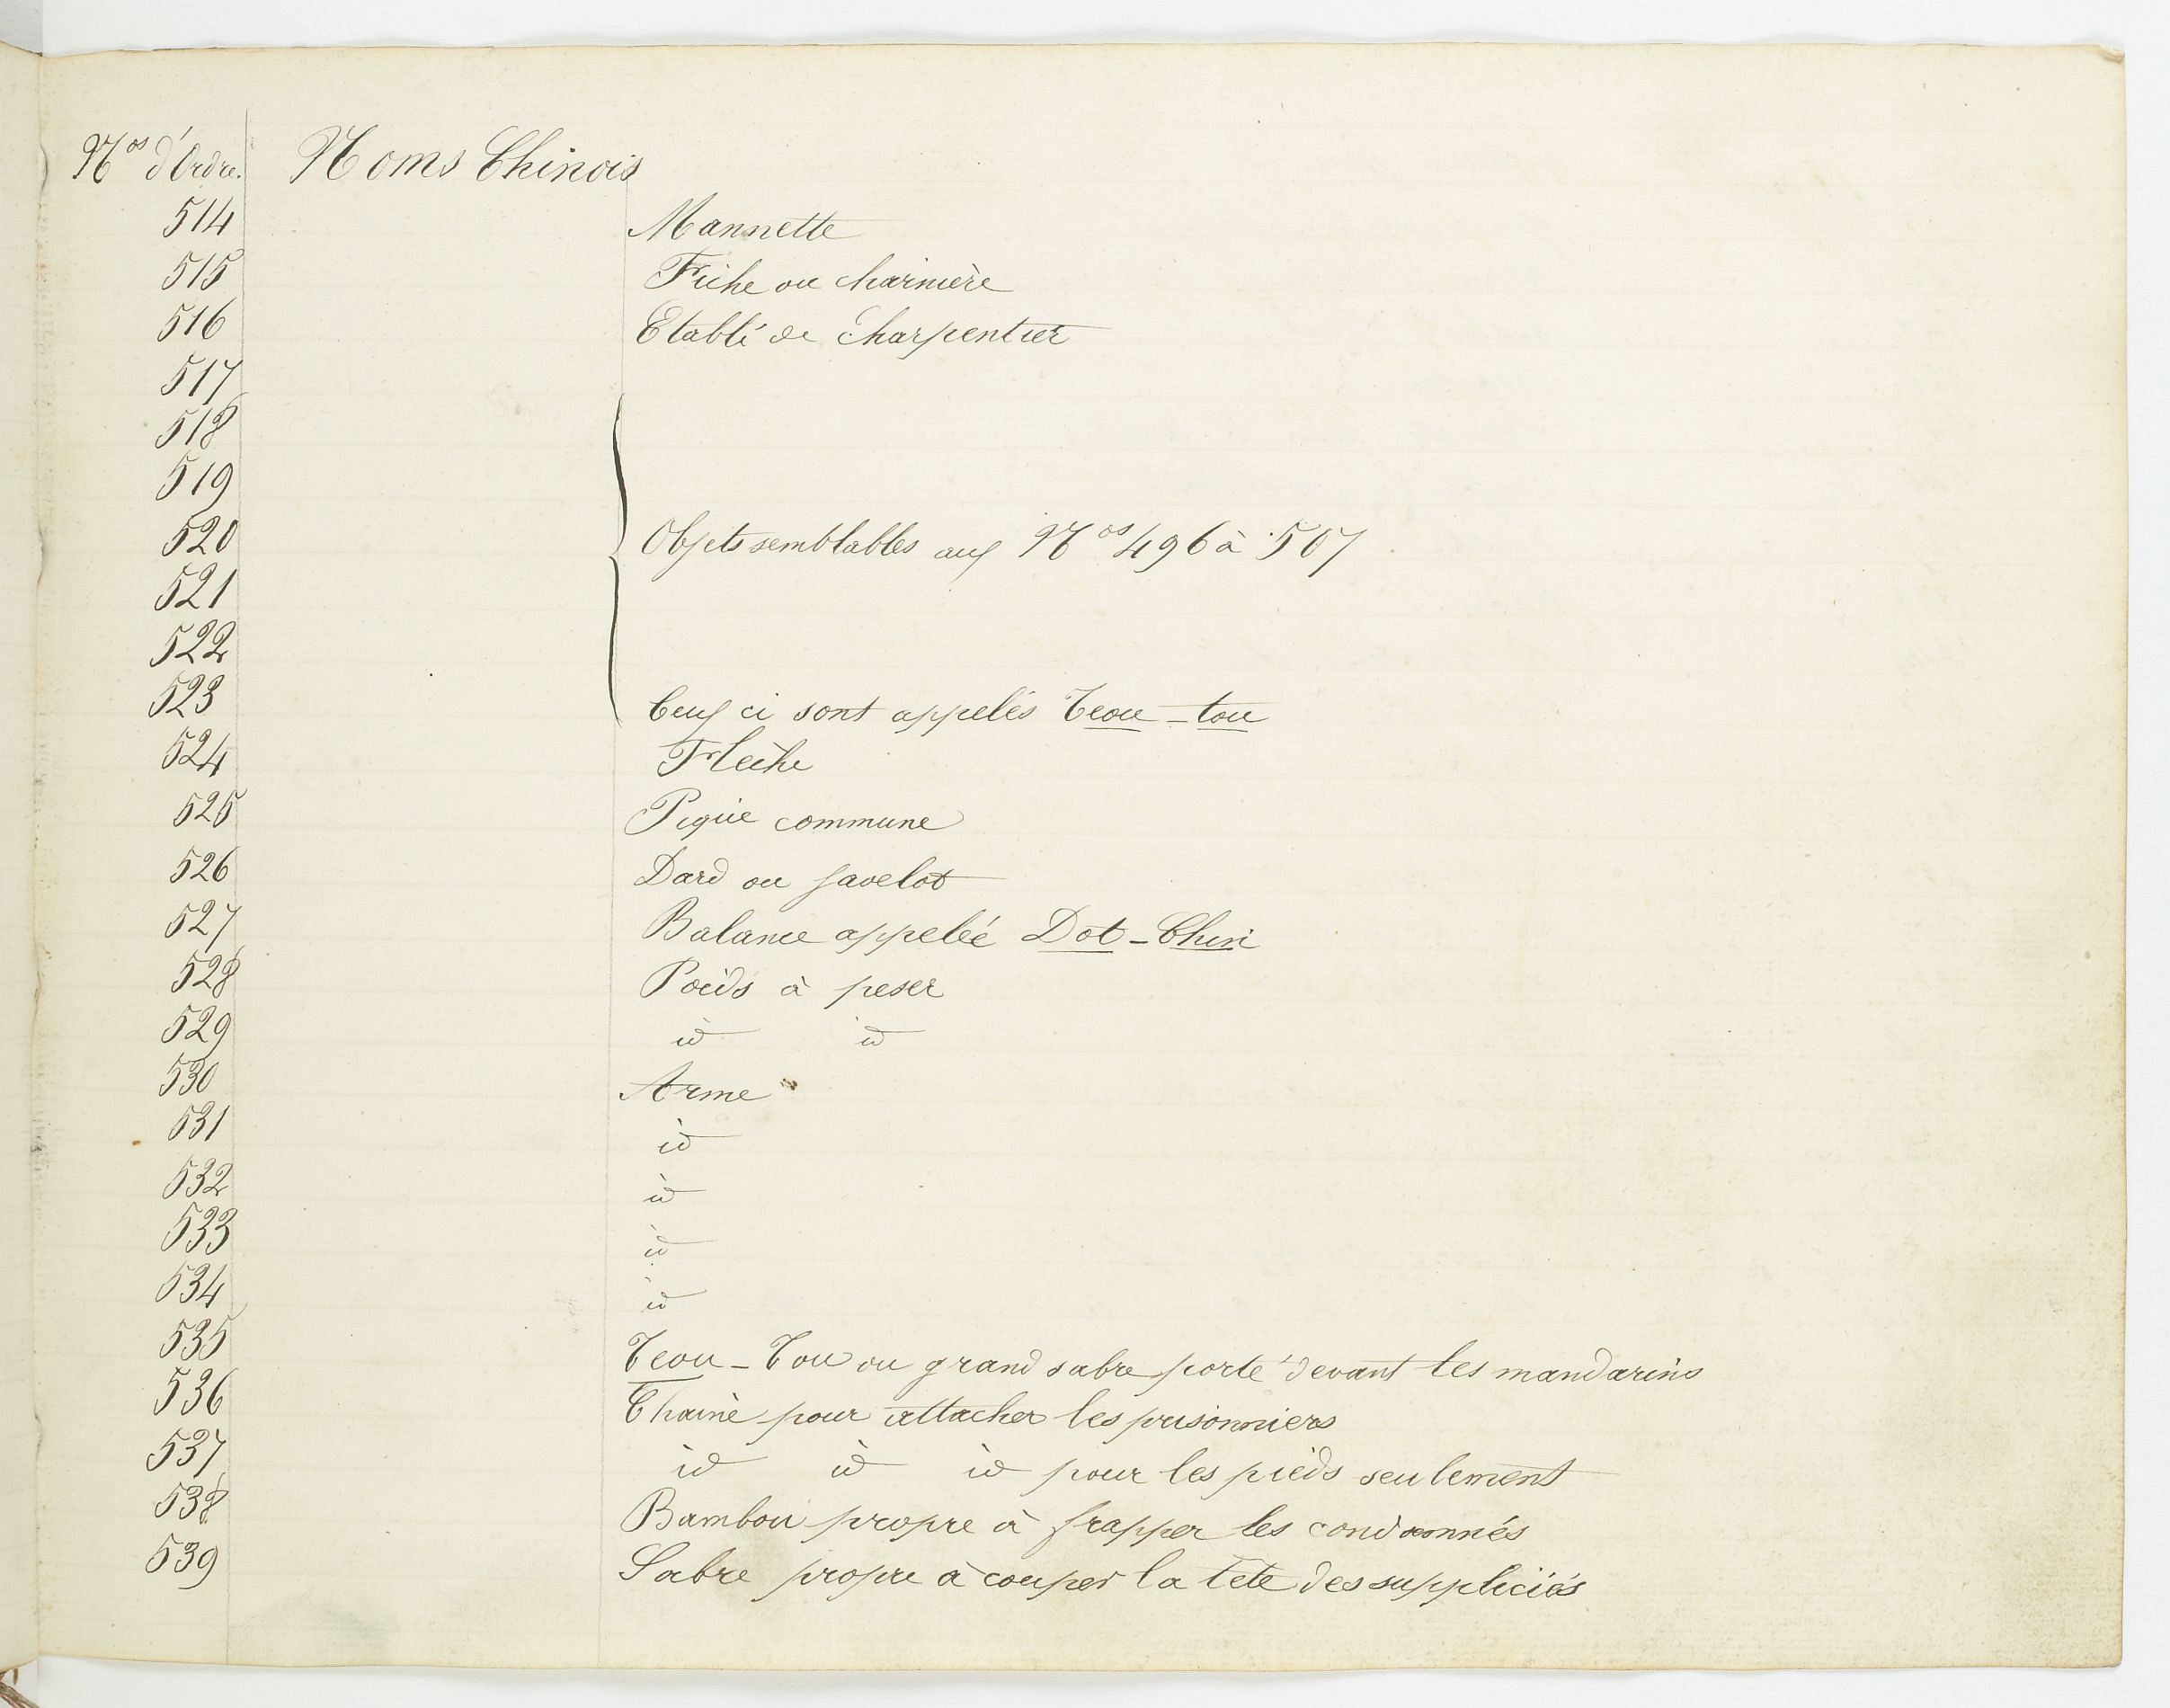 Nos d'Ordre. Noms Chinois
514 Mannette
515 Fiche ou charnière
516 Etabli de Charpentier
517
518
519
520 Objets semblables aux Nos 496 à 507
521
522
523 Ceux ci sont appelés Teou-tou
524 Flèche
525 Pique commune
526 Dard ou javelot
527 Balance appelée Dot-Chin
528 Poids à peser
529 id id
530 Arme
531 id
532 id
533 id
534 id
535 Teou-Tou ou grand sabre porté devant les mandarins
536 Chaine pour attacher les prisonniers
537 id id id pour les pieds seulement
538 Bambou propre à frapper les condamnés
539 Sabre propre à couper la tete des suppliciés